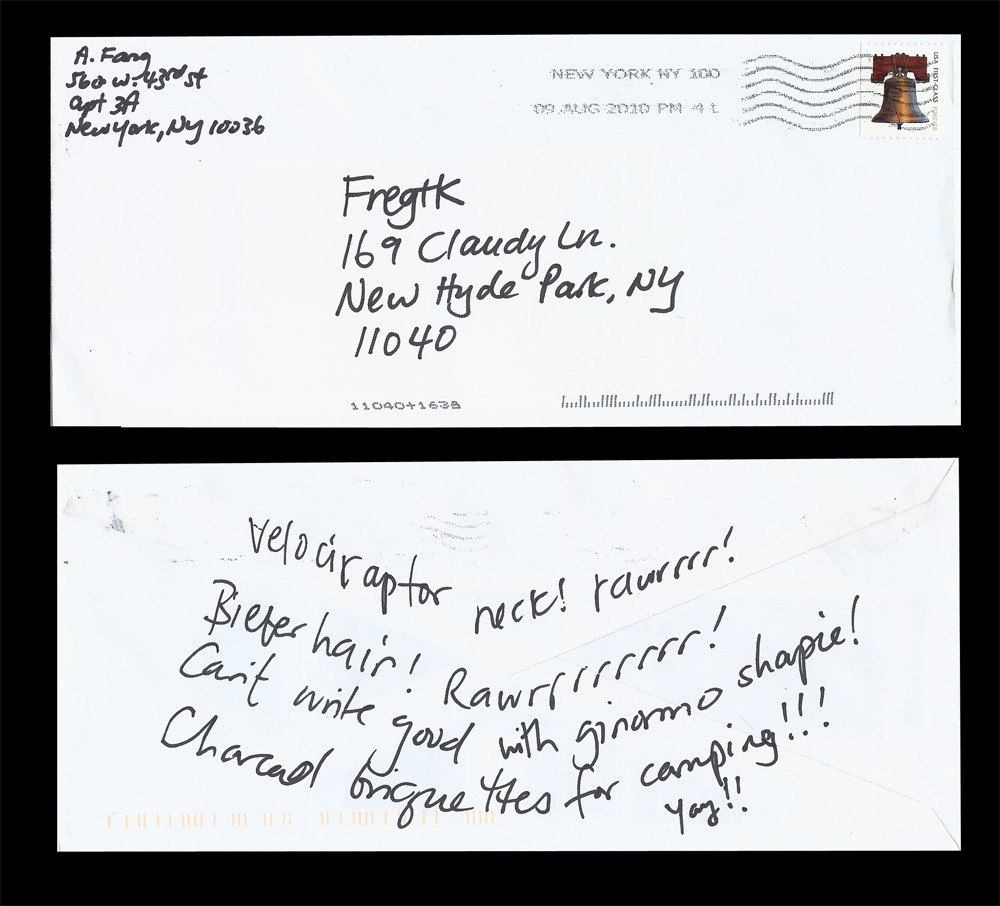 A. Fang
560 W. 43rd St
Apt 3A
New York, NY 10036
NEW YORK NY 100
09 AUG 2010 PM 4 L
USA FIRST-CLASS FOREVER
FregtK
169 Claudy Ln.
New Hyde Park, NY
11040
11040+1638
Velociraptor neck! rawrrrr!
Bieber hair! Rawrrrrrrrr!
Can't write good with ginormo shapie!
Charcoal briquettes for camping!!!
Yay!!